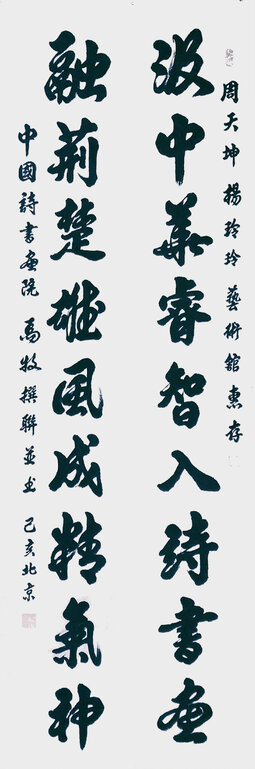 周天坤楊玲玲藝術館惠存
汲中華睿智入詩書畫
融荆楚雄風成精氣神
中國詩書畫院 馬牧撰聯並书 己亥北京